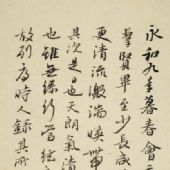 永和九年暮春會
羣賢畢至少長咸
更清流激湍暎帶
其次是日也天朗氣清
也雖無絲竹管絃
故列序時人錄其所